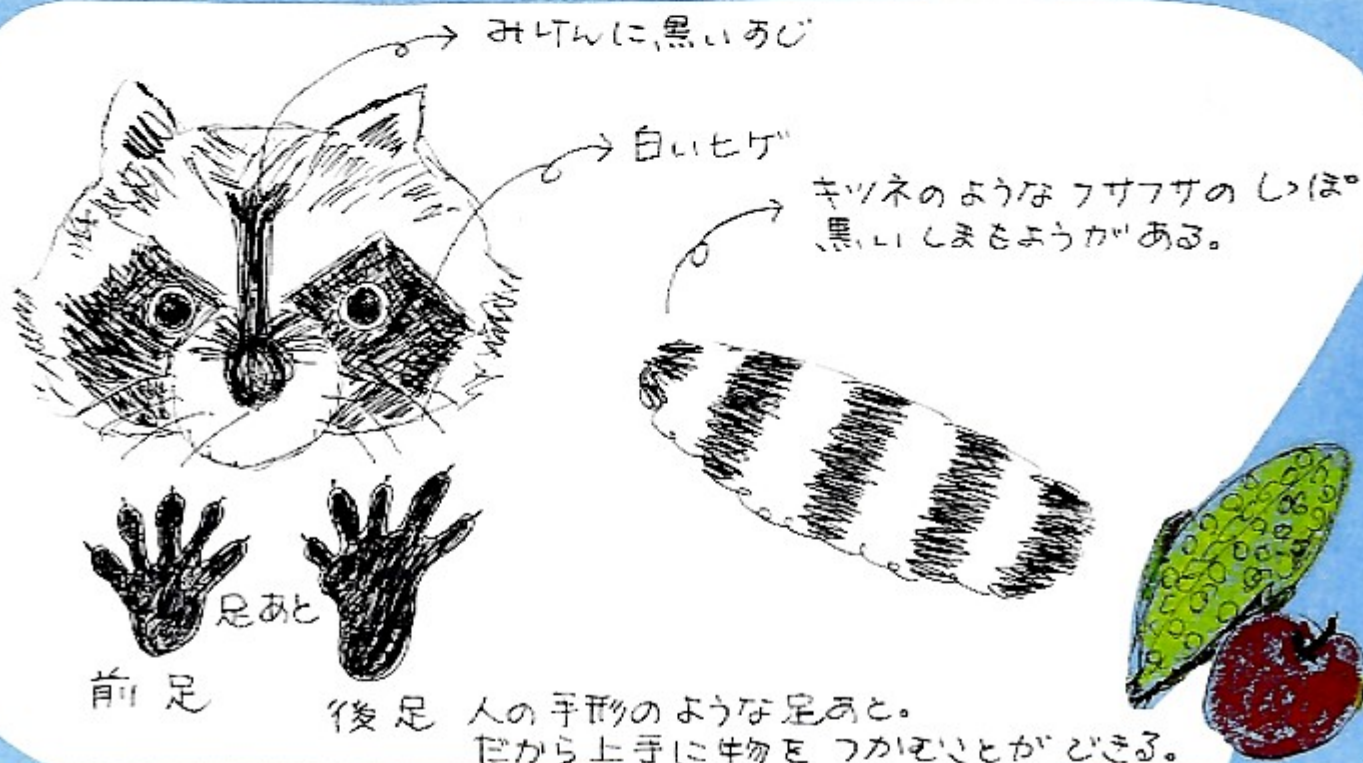 みけんに黒いすじ
白いヒゲ
キツネのようなフサフサのしっぽ
黒いしまもようがある。
足あと
前足
後足
人の手形のような足あと。
だから上手に物をつかむことができる。